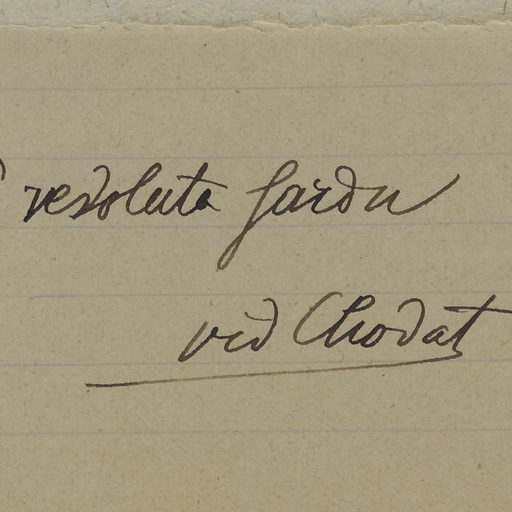 revoluta Gardn
vid Chodat